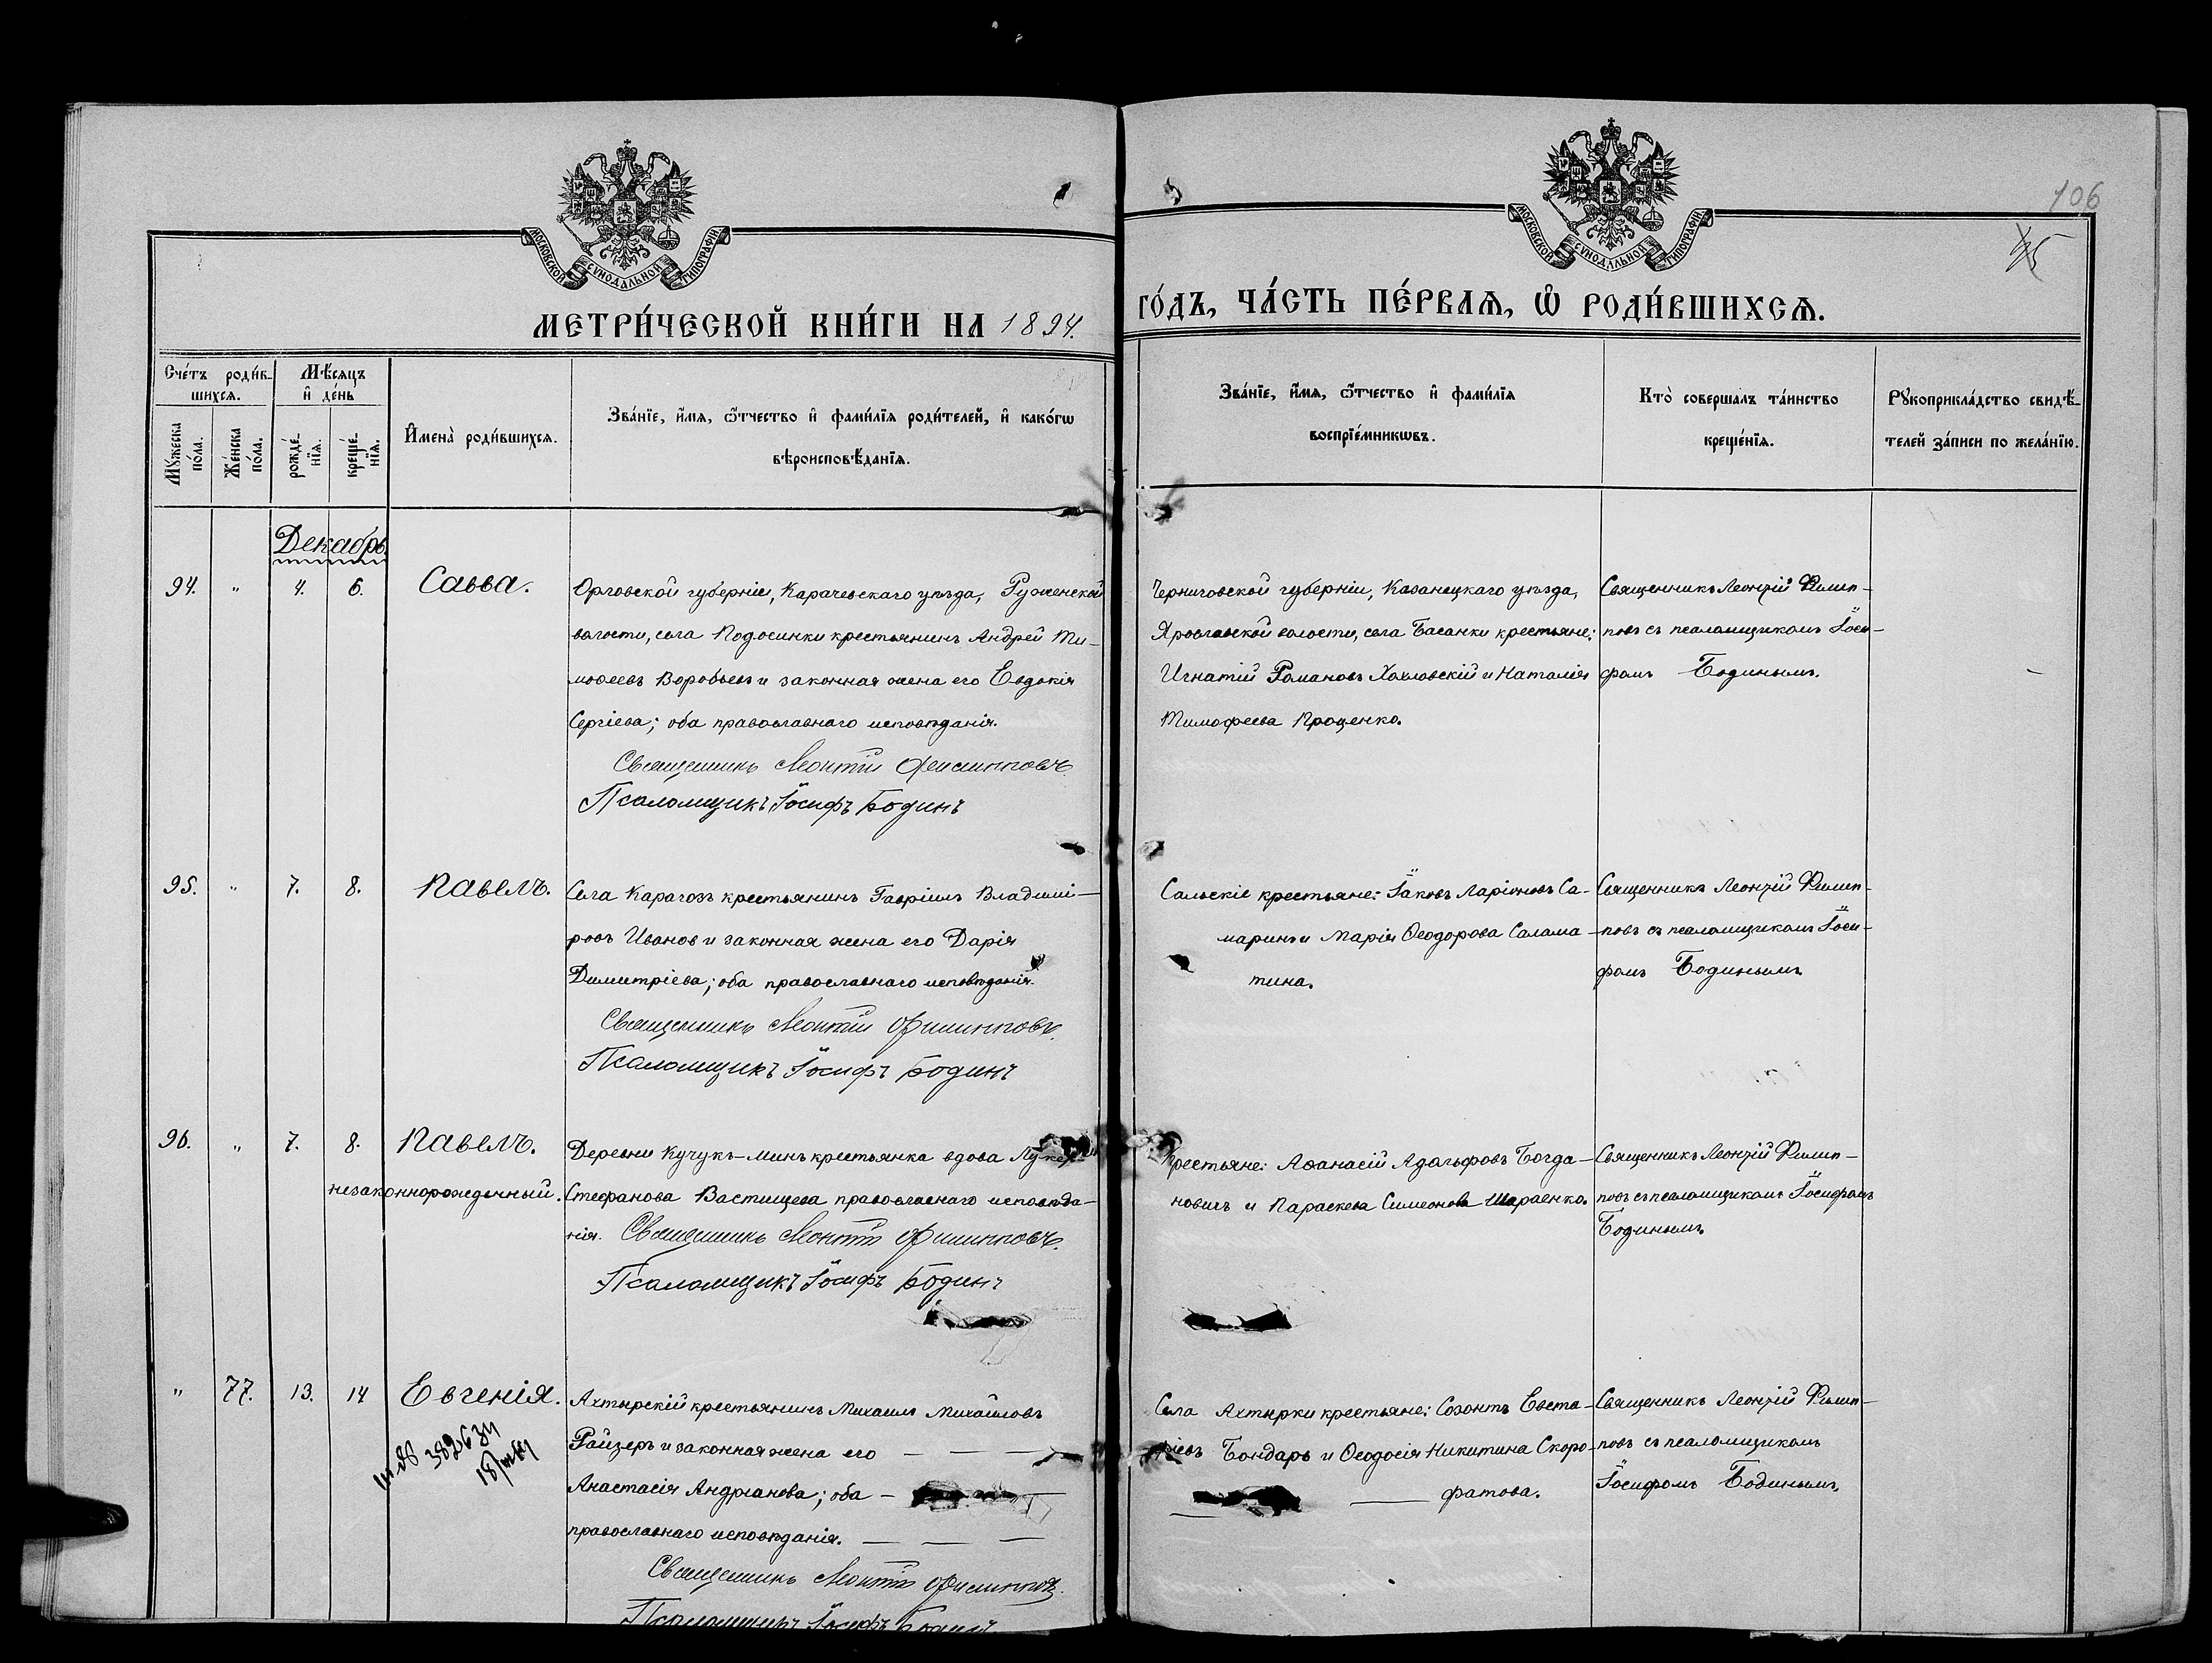 106
МОСКОВСКОЙ СѴНОДАЛЬНОЙ ТИПОГРАФІИ
МОСКОВСКОЙ СѴНОДАЛЬНОЙ ТИПОГРАФІИ
МЕТРИ́ЧЕСКОЙ КНИ́ГИ НА 1894.
ГО́ДЪ, ЧА́СТЬ ПЕ́РВАѦ, Ѡ҆ РОДИ́ВШИХСѦ.
Счéтъ роди́в-
шихсѧ.
Мѣ́сѧцъ
и҆ де́нь
Мꙋ́жеска
по́ла.
Же́нска
по́ла.
рожде́-
нїѧ.
креще́-
нїѧ.
И҆мена̀ роди́вшихсѧ.
Зва́нїе, и҆́мѧ, ѻ҆́тчество и҆ фами́лїѧ роди́телей, и҆ како́гѡ
вѣроисповѣ́данїѧ.
Зва́нїе, и҆́мѧ, ѻ҆́тчество и҆ фами́лїѧ
воспрїе́мникѡвъ.
Кто̀ совершалъ та́инство
креще́нїѧ.
Рꙋкоприкла́дство свидѣ́-
телей за́писи по жела́нїю.
Декабрь
94. „ 4. 6. Савва.
Орловской губерніи, Карачевскаго уѣзда, Руженской
волости, села Подосинки крестьянинъ Андрей Ти-
моѳеевъ Воробьевъ и законная жена его Евдокія
Сергіева; оба православнаго исповѣданія.
Священникъ Леонтій Филипповъ.
Псаломщикъ Іосифъ Бодинъ
Черниговской губерніи, Казанецкаго уѣзда,
Ярославской волости, села Басанки крестьяне:
Игнатій Романовъ Хохловскій и Наталія
Тимофеева Проценко.
Священникъ Леонтій Филип-
повъ съ псаломщикомъ Іоси-
фомъ Бодинымъ.
95. „ 7. 8. Павелъ.
Села Карагозъ крестьянинъ Гавріилъ Владимі-
ровъ Иванов и законная жена его Дарія
Димитріева; оба православнаго исповѣданія.
Священникъ Леонтій Филипповъ.
Псаломщикъ Іосифъ Бодинъ
Сальскіе крестьяне: Іаковъ Ларіоновъ Са-
маринъ и Марія Ѳеодорова Салама-
тина.
Священникъ Леонтій Филип-
повъ съ псаломщикомъ Іоси-
фомъ Бодинымъ
96. „ 7. 8. Павелъ.
незаконнорожденный.
Деревни Кучукъ-Минъ крестьянка вдова
Стефанова Вастищева православнаго исповѣда-
нія. Священникъ Леонтій Филипповъ.
Псаломщикъ Іосифъ Бодинъ
Крестьяне: Аѳанасій Адольфовъ Богда-
новичъ и Параскева Симеонова Шараенко.
Священникъ Леонтій Филип-
повъ съ псаломщикомъ Іосифомъ
Бодинымъ
„ 77. 13. 14 Евгенія.
Ахтырскій крестьянинъ Михаилъ Михайловъ
Райзеръ и законная жена его
Анастасія Андріанова; оба
православнаго исповѣданія.
Священникъ Леонтій Филипповъ.
Псаломщикъ Іосифъ Бодинъ
Села Ахтырки крестьяне: Созонтъ Евста-
фіевъ Бондарь и Ѳеодосія Никитина Скоро-
фатова.
Священникъ Леонтій Филип-
повъ съ псаломщикомъ
Іосифомъ Бодинымъ.